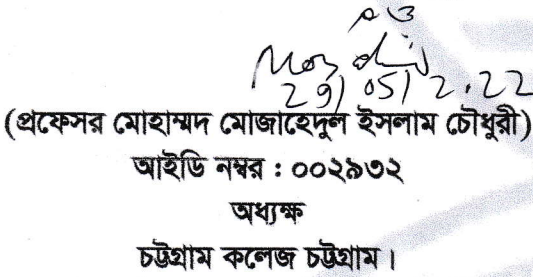 29/05/2.22
(প্রফেসর মোহাম্মদ মোজাহেদুল ইসলাম চৌধুরী)
আইডি নম্বর : ০০২৯৩২
অধ্যক্ষ
চট্টগ্রাম কলেজ চট্টগ্রাম।